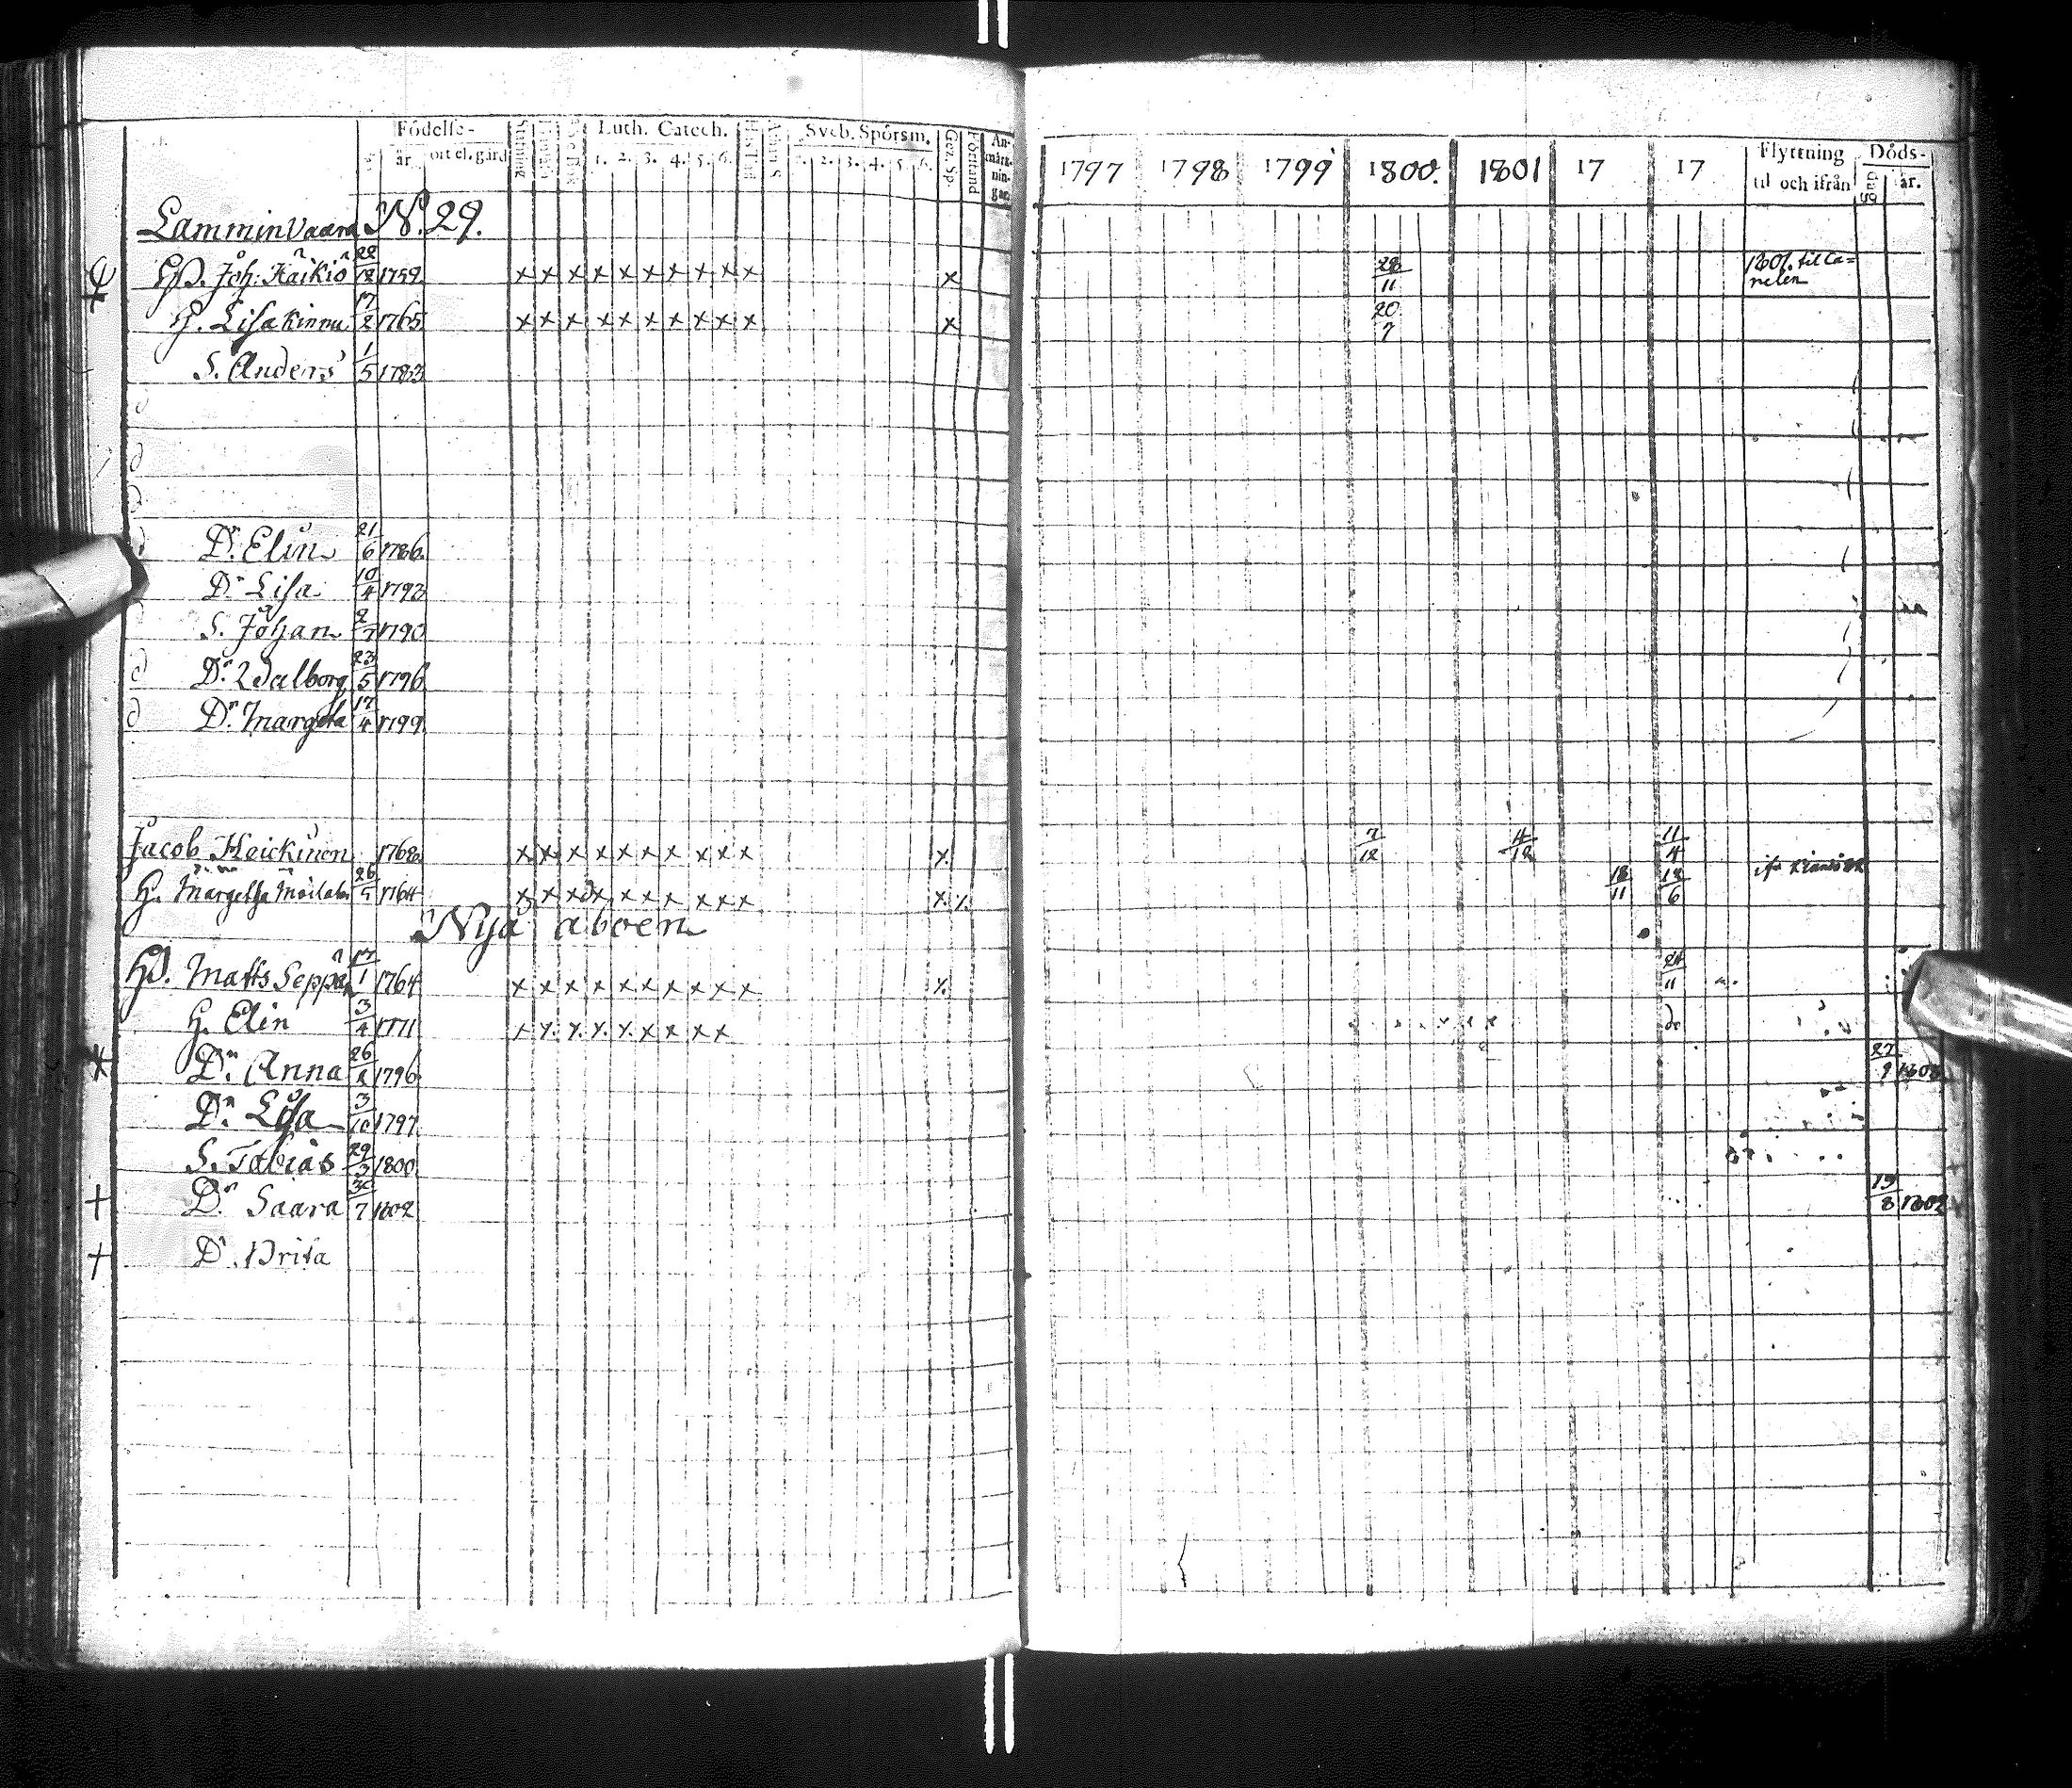 Födelse- Luth. Catech. Sveb. Spörsm. Gez. Sp. Förstånd An-märk-nin-gar. 1797 1798 1799 1800. 1801 17 17 Flyttning Döds-
år. ort el. gård 1. 2. 3. 4. 5. 6. 2. 3. 4. 5. 6. til och ifrån dag år.
Lamminvaara N. 29.
HB. Joh: Käikiö 28/12 1759. x x x x x x x x x x x 28/11 1801. til Ca=
nelen
H. Lisa Kinnu 17/2 1765 x x x x x x x x x x x 20/7
S. Anders 1/5 1783
Dr. Elin 21/6 1786.
Dr Lisa 10/4 1793
S. Johan 2/7 1790
Dr. Walborg 23/5 1796
Dr. Margeta 17/4 1799
Jacob Heickinen 1768 x x x x x x x x x x x 7/12 4/12 11/4
H. Margetha 26/5 1764 x x x x x x x x x x x 18/11 18/6
Nya åboen
HB. Matts Seppän 17/1 1764 x x x x x x x x x x x 24/11
H. Elin 3/4 1771 x x x x x x x x x do
Dr. Anna 26/2 1796 27/9 1808
Dr. Lisa 3/10 1797
S. Tobias 29/3 1800
† Dr Saara 30/7 1802 19/8 1802
† Dr. Brita